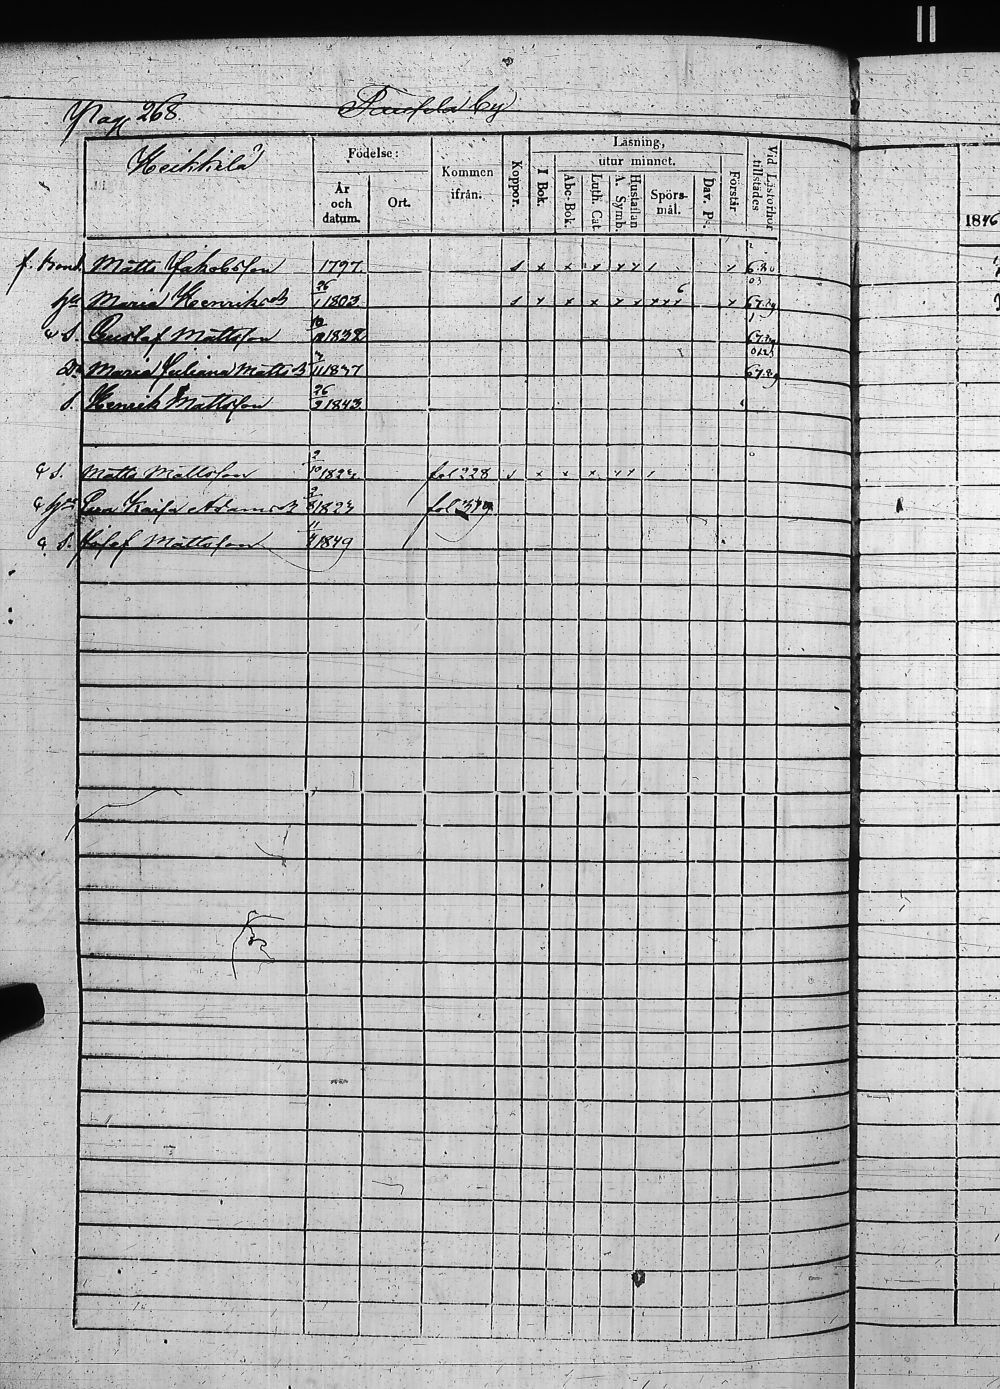 Pag 268. by
Heikkilä
Födelse:
År och datum.
Ort.
Kommen ifrån.
Koppor.
Läsning,
utur minnet.
I Bok.
Abc-Bok.
Luth. Cat.
Hustaflan A. Symb.
Spörsmål.
Dav. Ps.
Förstår
Vid Läsförhör tillstädes
1846
f. Bond. Matts Jakobsson 1797 s x x x x x 1 x
Maria Henriksd. 26/1 1803 s x x x x x x x x 6 x 67.
S. Gustaf Mattsson 1832 67.
Dr Maria Juliana Mattsd. 1837 67.
S. Henrik Mattsson 26/9 1843
S. Matts Mattsson 2/10 fol 228 s x x x x x 1
Eva Kaisa Adamsd. fol
S. Josef Mattsson 11/ 1849